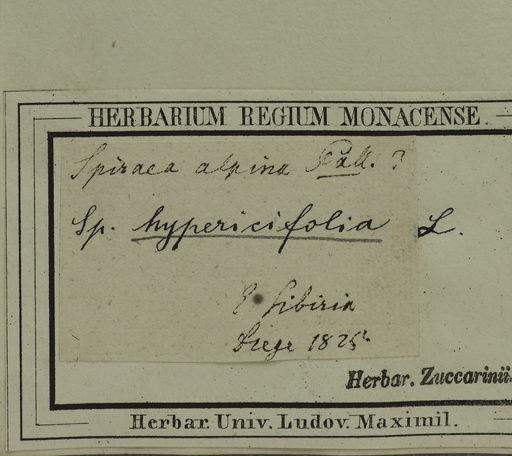 HERBARIUM REGIUM MONACENSE.
Spiraea alpina Pall. ?
Sp. hypericifolia L.
Sibiria
1825.
Herbar. Zuccarinii.
Herbar. Univ. Ludov. Maximil.